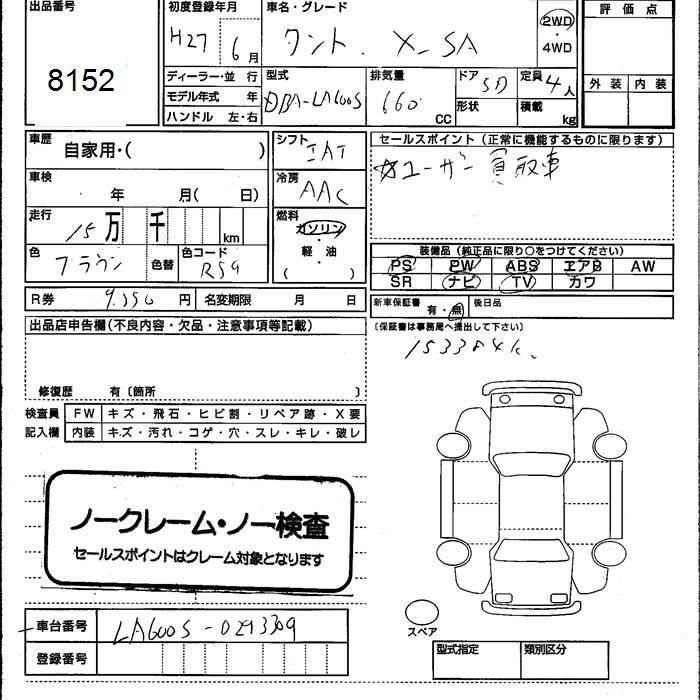 出品番号
8152
初度登録年月
H27 6月
車名・グレード
タント. X-SA
2WD
・
4WD
評価点
外装 内装
ディーラー・並 行
モデル年式 年
ハンドル 左・右
型式
DBA-LA600S
排気量
660
CC
ドア 5D
形状
定員 4人
積載 kg
車歴
自家用・( )
車検
年 月( 日)
走行
15万 千 km
色
ブラウン
色替
色コード
R59
シフト
IAT
冷房
AAC
燃料
ガソリン
軽・油
( )
セールスポイント(正常に機能するものに限ります)
ユーザー買取車
装備品(純正品に限り○をつけてください)
PS PW ABS エアB AW
SR ナビ TV カワ
R券 円 名変期限 月 日
新車保証書 有・無 後日品
(保証書は事務局へ提出して下さい)
出品店申告欄(不良内容・欠品・注意事項等記載)
修復歴 有〔箇所 〕
検査員 FW キズ・飛石・ヒビ割・リペア跡・X要
記入欄 内装 キズ・汚れ・コゲ・穴・スレ・キレ・破レ
ノークレーム・ノー検査
セールスポイントはクレーム対象となります
車台番号 LA600S-0293309
登録番号
スペア
型式指定 類別区分